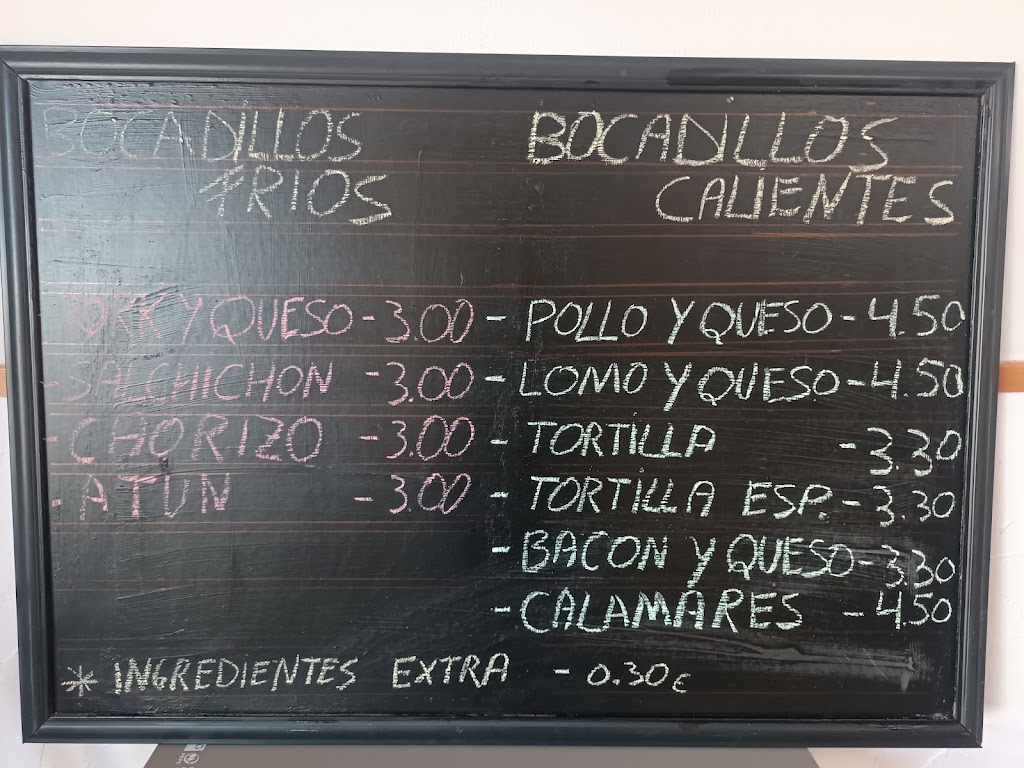 BOCADILLOS
FRIOS
YORK Y QUESO - 3.00
- SALCHICHON - 3.00
- CHORIZO - 3.00
- ATUN - 3.00
BOCADILLOS
CALIENTES
- POLLO Y QUESO - 4.50
- LOMO Y QUESO - 4.50
- TORTILLA - 3.30
- TORTILLA ESP. - 3.30
- BACON Y QUESO - 3.30
- CALAMARES - 4.50
* INGREDIENTES EXTRA - 0.30€